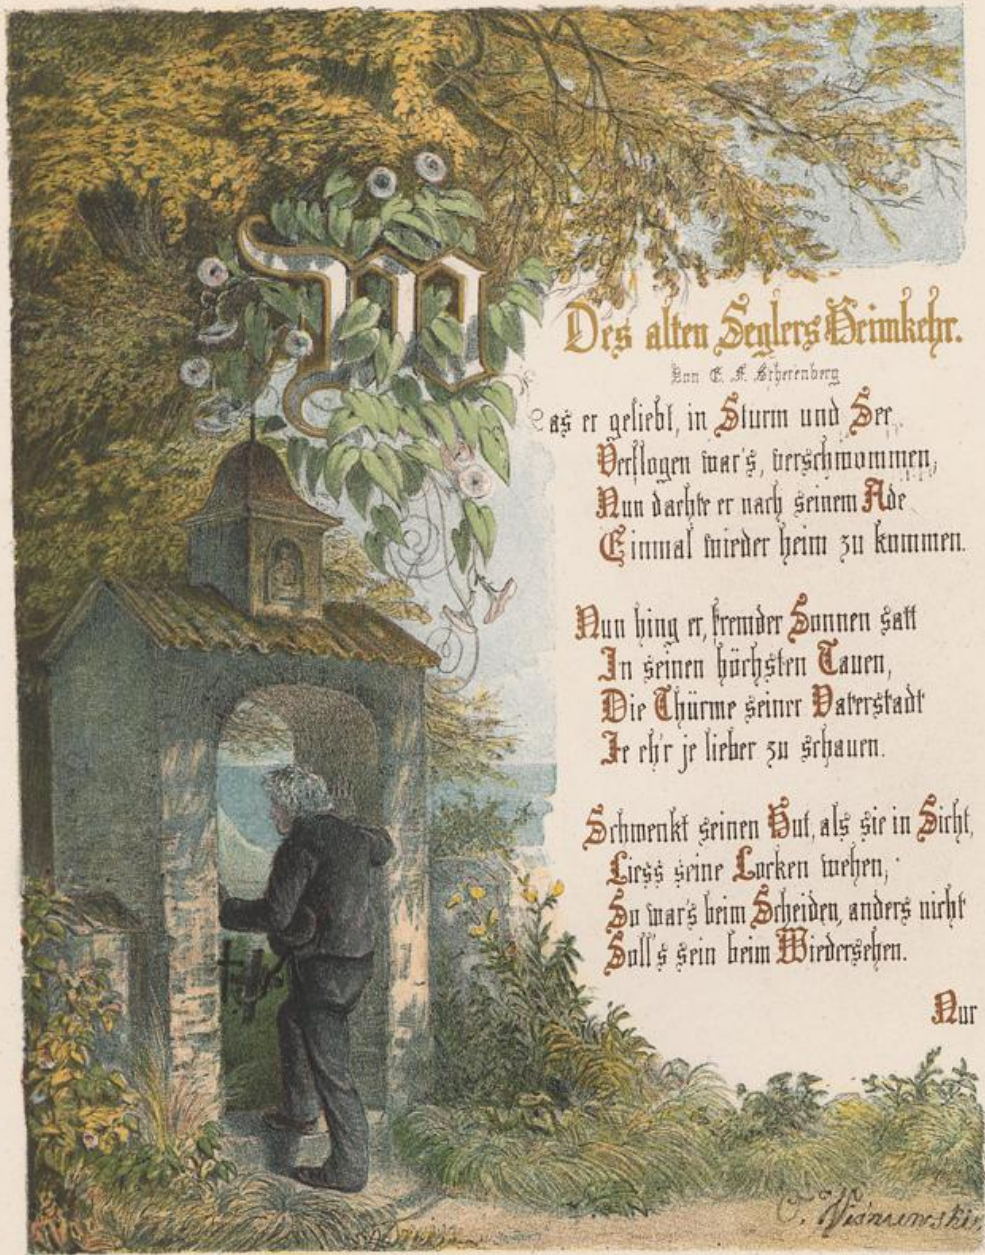 Des alten Seglers Heimkehr.
Von C. F. Scherenberg
Was er geliebt, in Sturm und See,
Verflogen war's, verschwommen,
Nun dachte er nach seinem Ade
Einmal wieder heim zu kommen.
Nun hing er, fremder Sonnen satt
In seinen höchsten Tauen,
Die Thürme seiner Vaterstadt
Je eh'r je lieber zu schauen.
Schwenkt seinen Hut, als sie in Sicht,
Liess seine Locken wehen,
So war's beim Scheiden, anders nicht
Soll's sein beim Wiedersehen.
Nur
O. Wisniewski